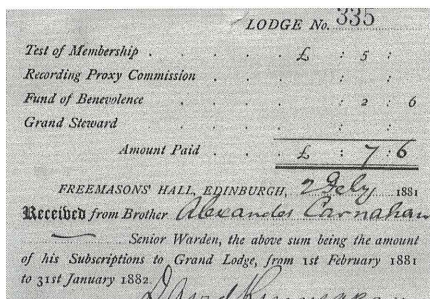 LODGE No. 335
Test of Membership . . . . £ : 5 :
Recording Proxy Commission . . . : :
Fund of Benevolence . . . . : 2 : 6
Grand Steward . . . . : :
Amount Paid . . . £ : 7 : 6
FREEMASONS' HALL, EDINBURGH, 2 Feby 1881
Received from Brother Alexander Carnahan
Senior Warden, the above sum being the amount
of his Subscriptions to Grand Lodge, from 1st February 1881
to 31st January 1882.
David